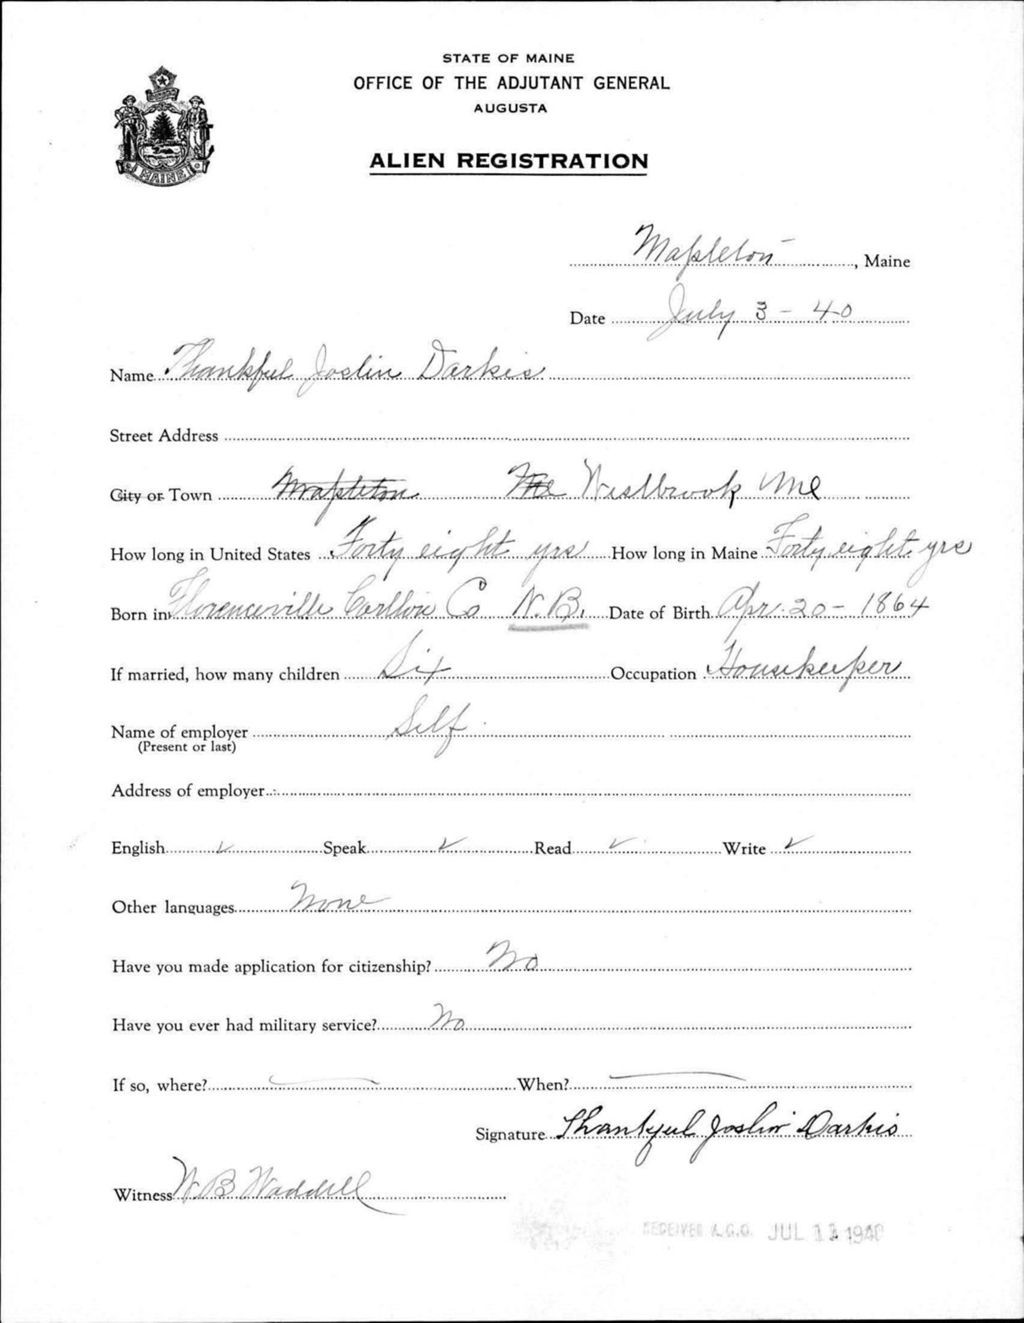 STATE OF MAINE
OFFICE OF THE ADJUTANT GENERAL
AUGUSTA
ALIEN REGISTRATION
MAINE
Mapleton, Maine
Date July 3 - 40
Name Thankful Joslin Darkis
Street Address
City or Town Mapleton Me Westbrook Me
How long in United States Forty eight yrs How long in Maine Forty eight yrs
Born in Florenceville Carlton Co N.B. Date of Birth Apr. 20 - 1864
If married, how many children Six Occupation Housekeeper
Name of employer Self
(Present or last)
Address of employer
English ✓ Speak ✓ Read ✓ Write ✓
Other languages None
Have you made application for citizenship? No
Have you ever had military service? No
If so, where? — When? —
Signature Thankful Joslin Darkis
Witness W B Waddell
RECEIVED A.G.O. JUL 1940